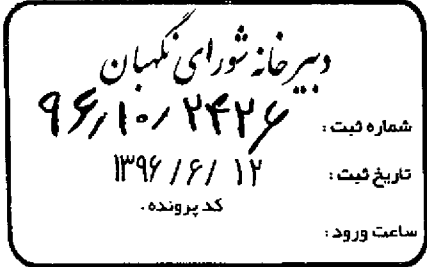 دبیرخانه شورای نگهبان
شماره ثبت : ۹۶/۱۰/۲۴۲۶
تاریخ ثبت : ۱۳۹۶/۶/۱۲
کد پرونده .
ساعت ورود :